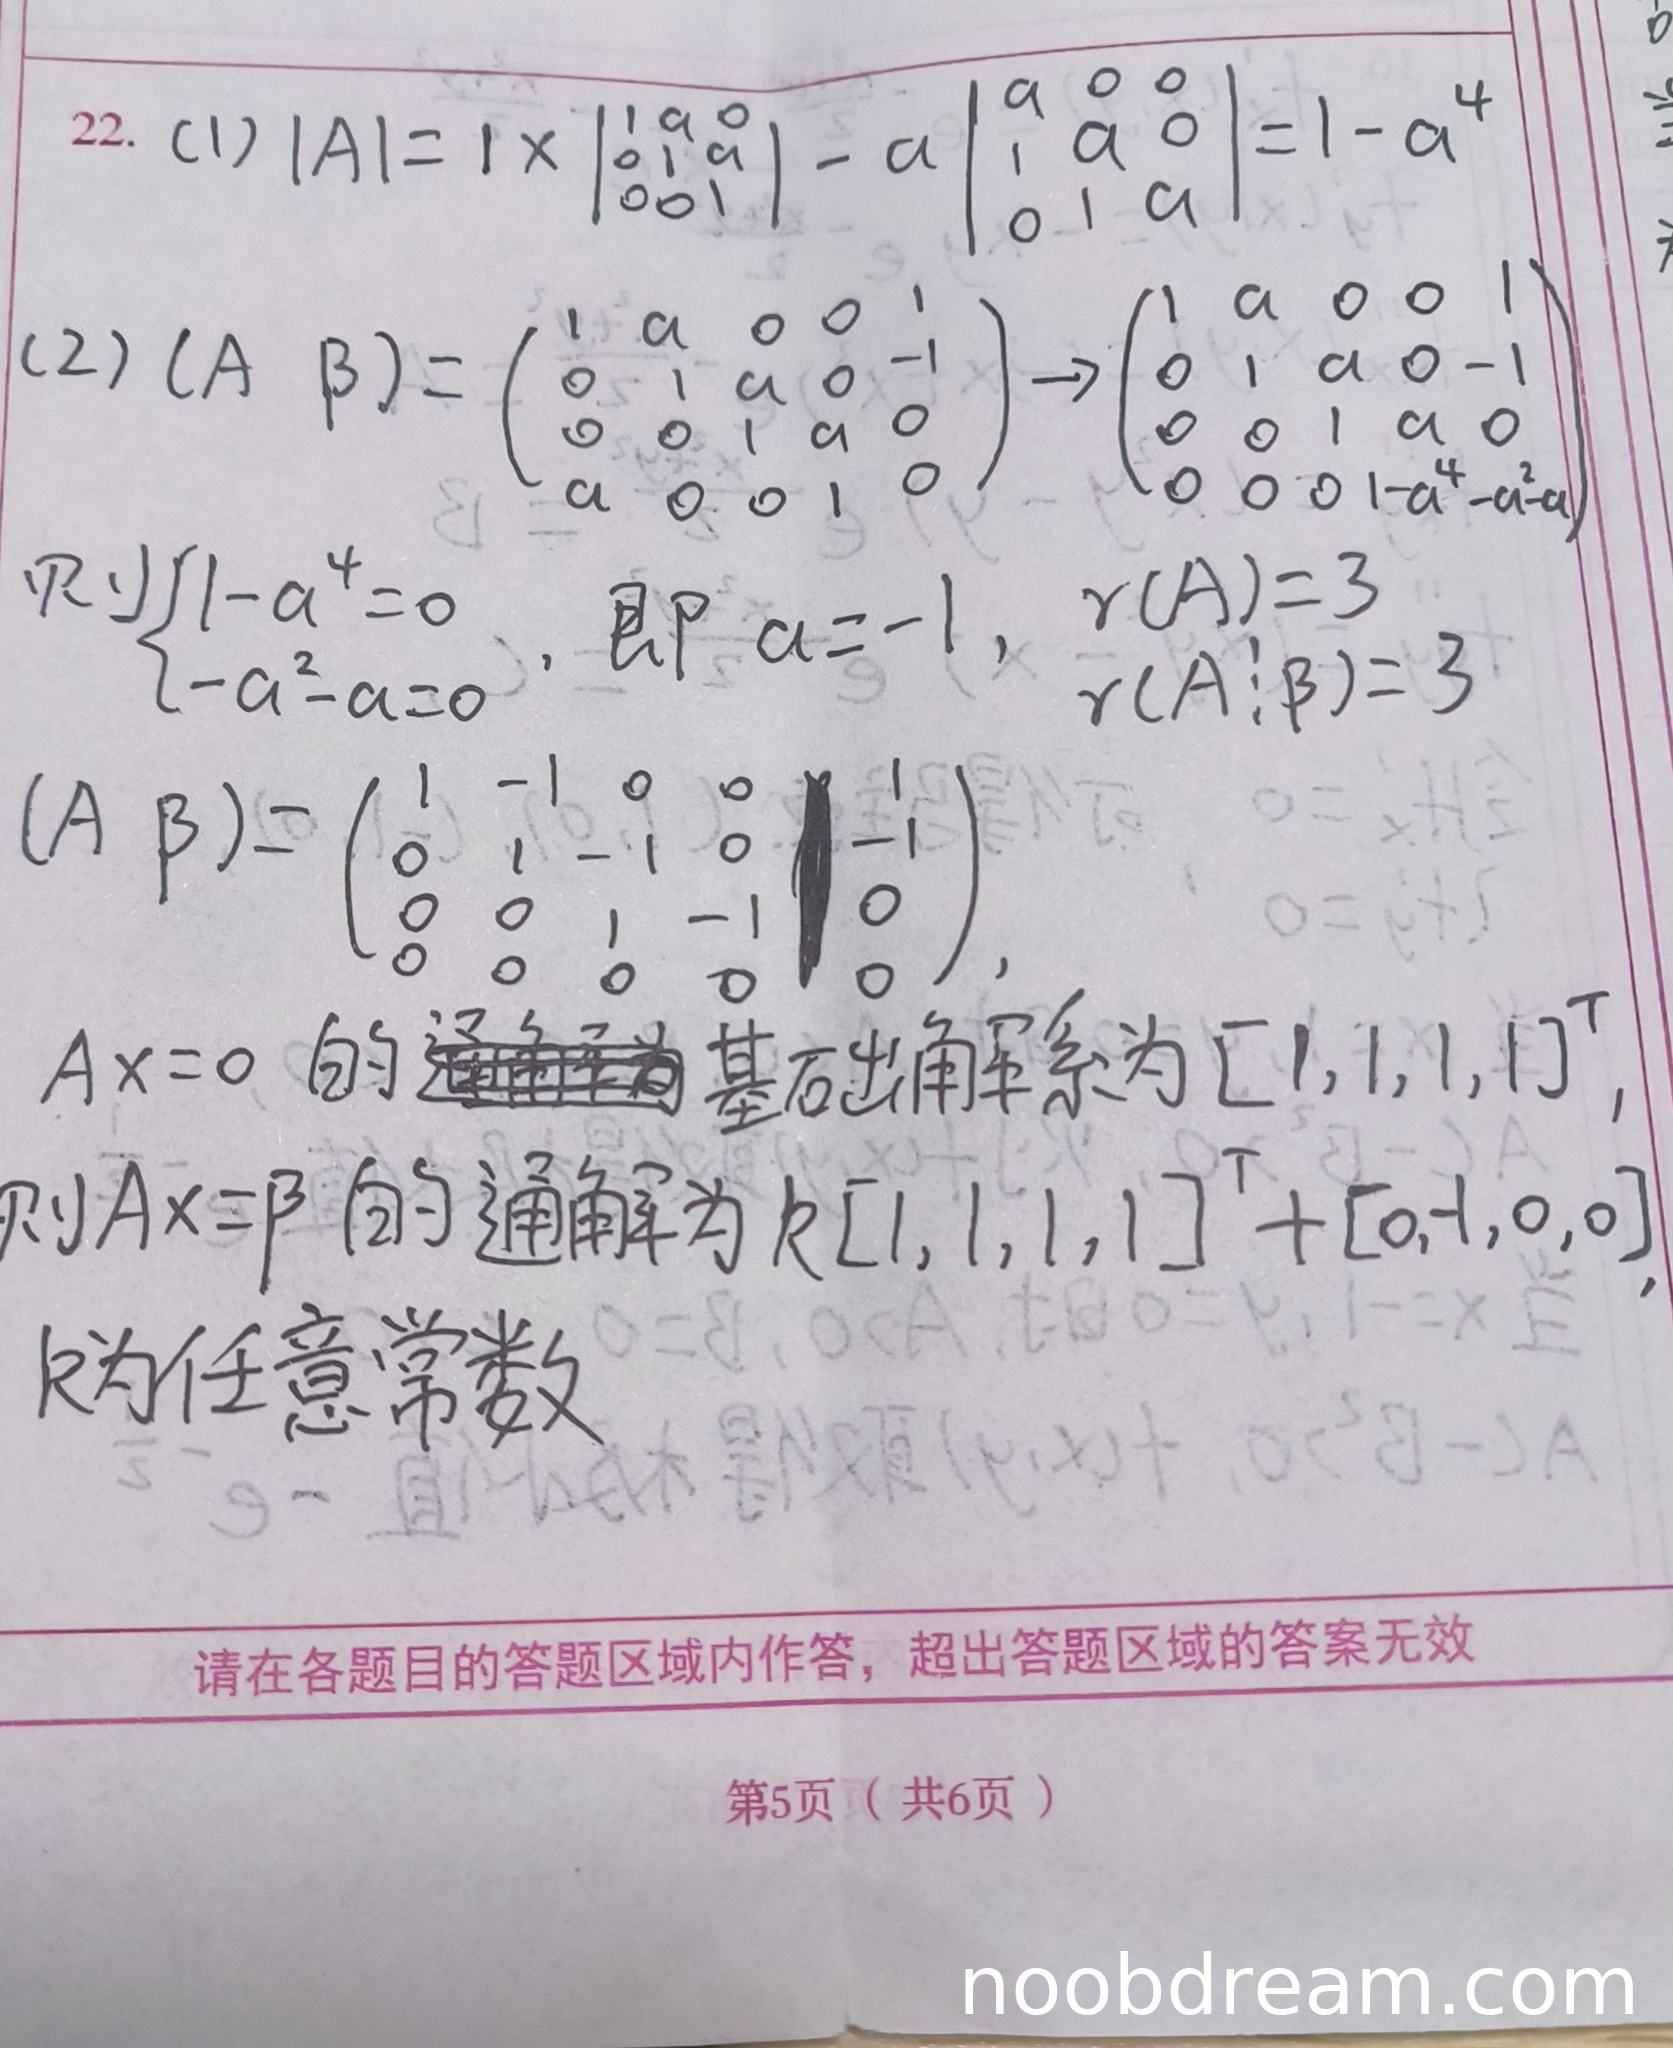 22. (1) |A| = 1 × | 1 a 0 | - a | a 0 0 | = 1 - a⁴
0 1 a 1 a 0
0 0 1 0 1 a
(2) (A β) = ( 1 a 0 0 1 ) → ( 1 a 0 0 1 )
0 1 a 0 -1 0 1 a 0 -1
0 0 1 a 0 0 0 1 a 0
a 0 0 1 0 0 0 0 1-a⁴ -a²-a
则 { 1-a⁴=0
-a²-a=0 , 即 a=-1, r(A)=3
r(A⋮β)=3
(A β) = ( 1 -1 0 0 1 )
0 1 -1 0 -1
0 0 1 -1 0
0 0 0 0 0 ,
Ax=0 的基础解系为[1,1,1,1]ᵀ,
则Ax=β的通解为k[1,1,1,1]ᵀ+[0,-1,0,0],
k为任意常数
请在各题目的答题区域内作答，超出答题区域的答案无效
第5页（共6页）
noobdream.com